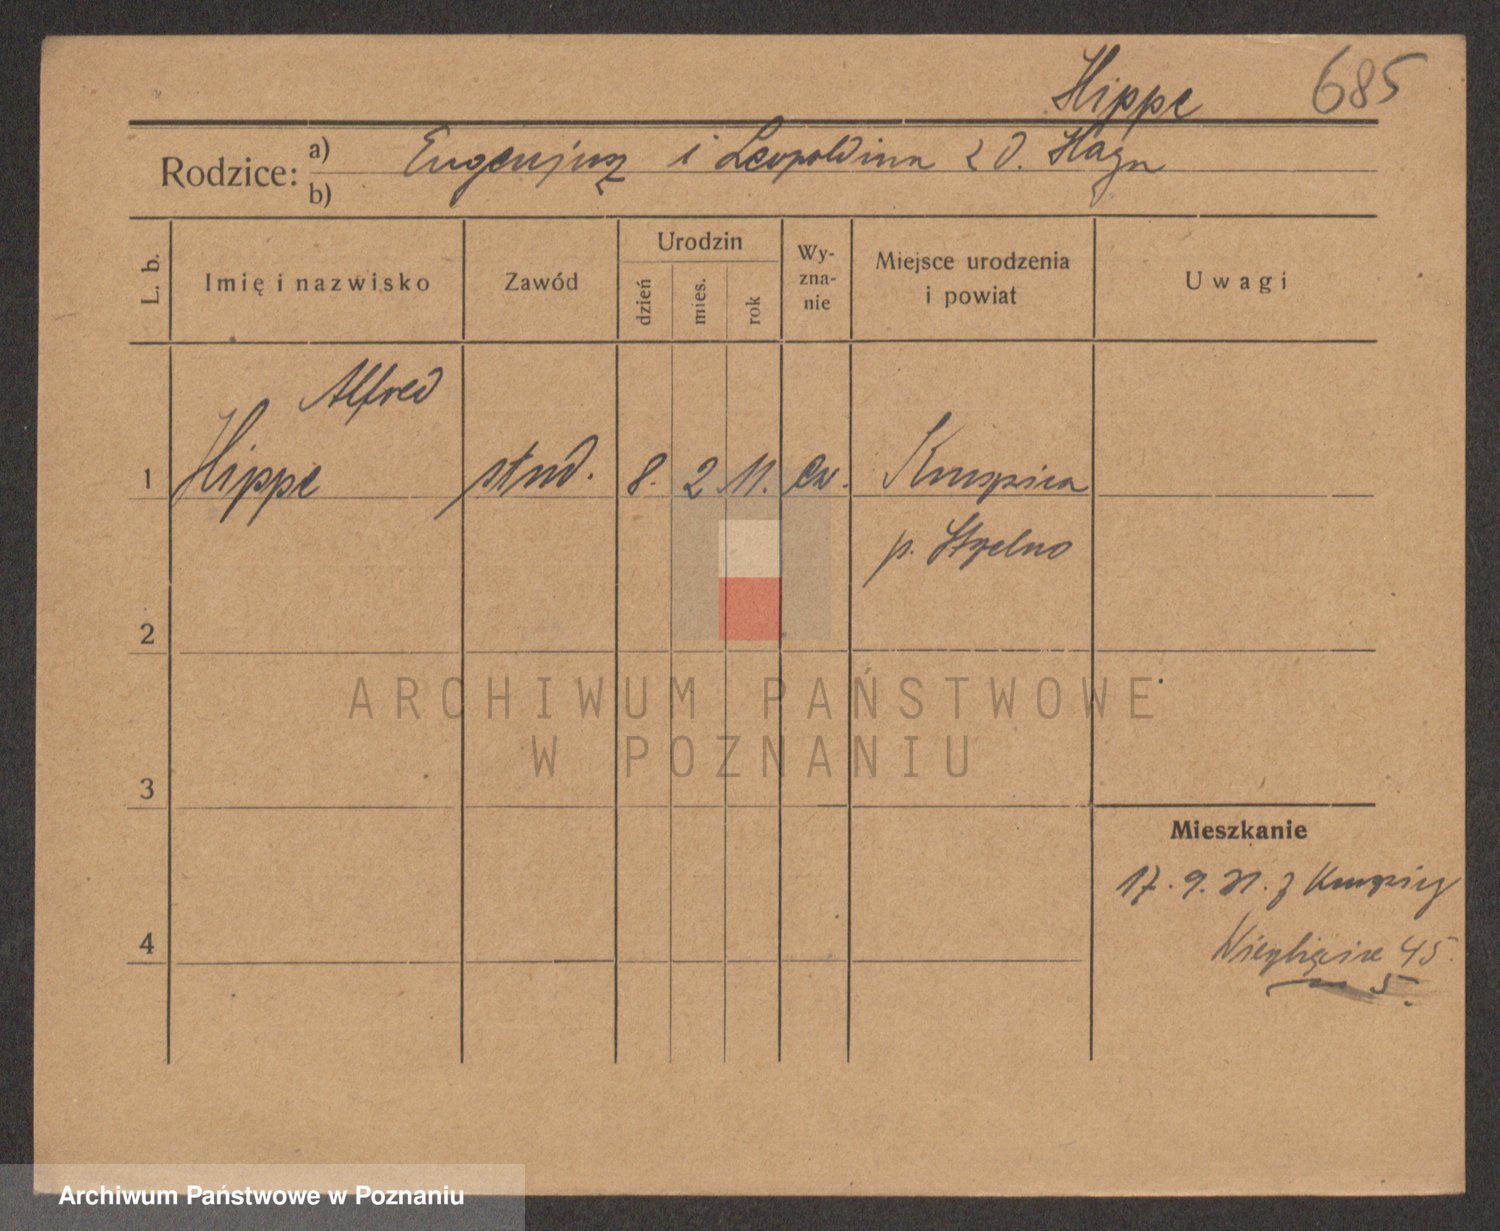 Hippe 685
Rodzice: a) Eugenjusz i Leopoldina z d. Hagn
b)
L. b. Imię i nazwisko Zawód Urodzin dzień mies. rok Wy-zna-nie Miejsce urodzenia i powiat Uwagi
Alfred
1 Hippe stud. 8. 2. 11. ew. Kruszwica
p. Strzelno
2
ARCHIWUM PAŃSTWOWE
W POZNANIU
3
Mieszkanie
17. 9. 31. z
4
45
m 5.
Archiwum Państwowe w Poznaniu